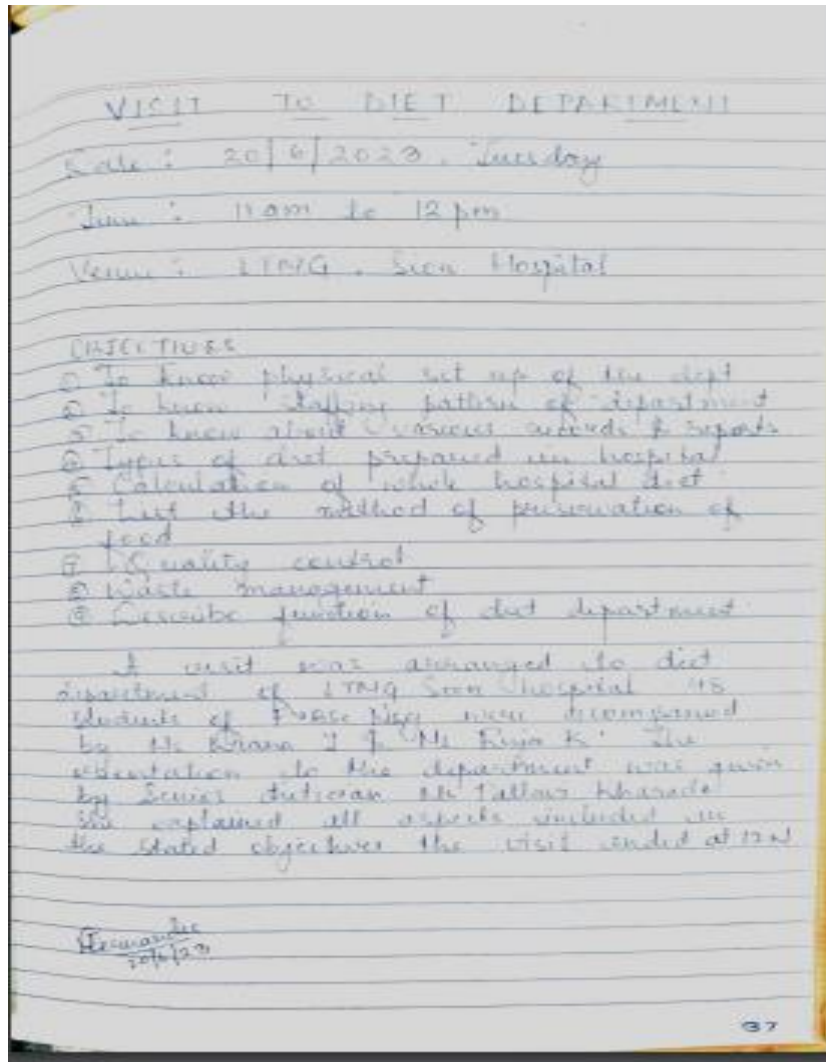 VISIT TO DIET DEPARTMENT
Date : 20/6/2023, Tuesday
Time : 11 am to 12 pm
Venue : LTMG, Sion Hospital
OBJECTIVES
① To know physical set up of the dept
② To know staffing pattern of department
③ To know about various records & reports
④ Types of diet prepared in hospital
⑤ Calculation of whole hospital diet
⑥ List the method of preservation of
food
⑦ Quality control
⑧ Waste management
⑨ Describe function of diet department
A visit was arranged to diet
department of LTMG Sion hospital
students of were accompanied
by The
orientation to the department was given
by Senior dietician Kharade
She explained all aspects included in
the stated objectives the visit ended at 12 N
20/6/23
37